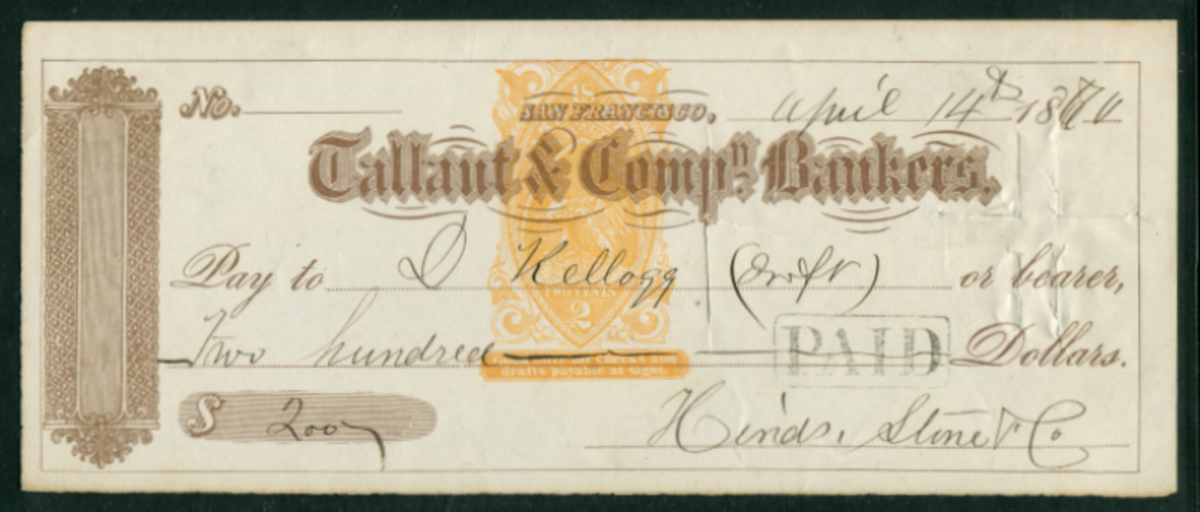 No. SAN FRANCISCO, April 14th 18
Tallant & Compy. Bankers,
Pay to D Kellogg (Draft) or bearer,
Two hundred Dollars.
PAID
TWO CENTS
2
drafts payable at sight.
$ 200
Hinds, Stone & Co